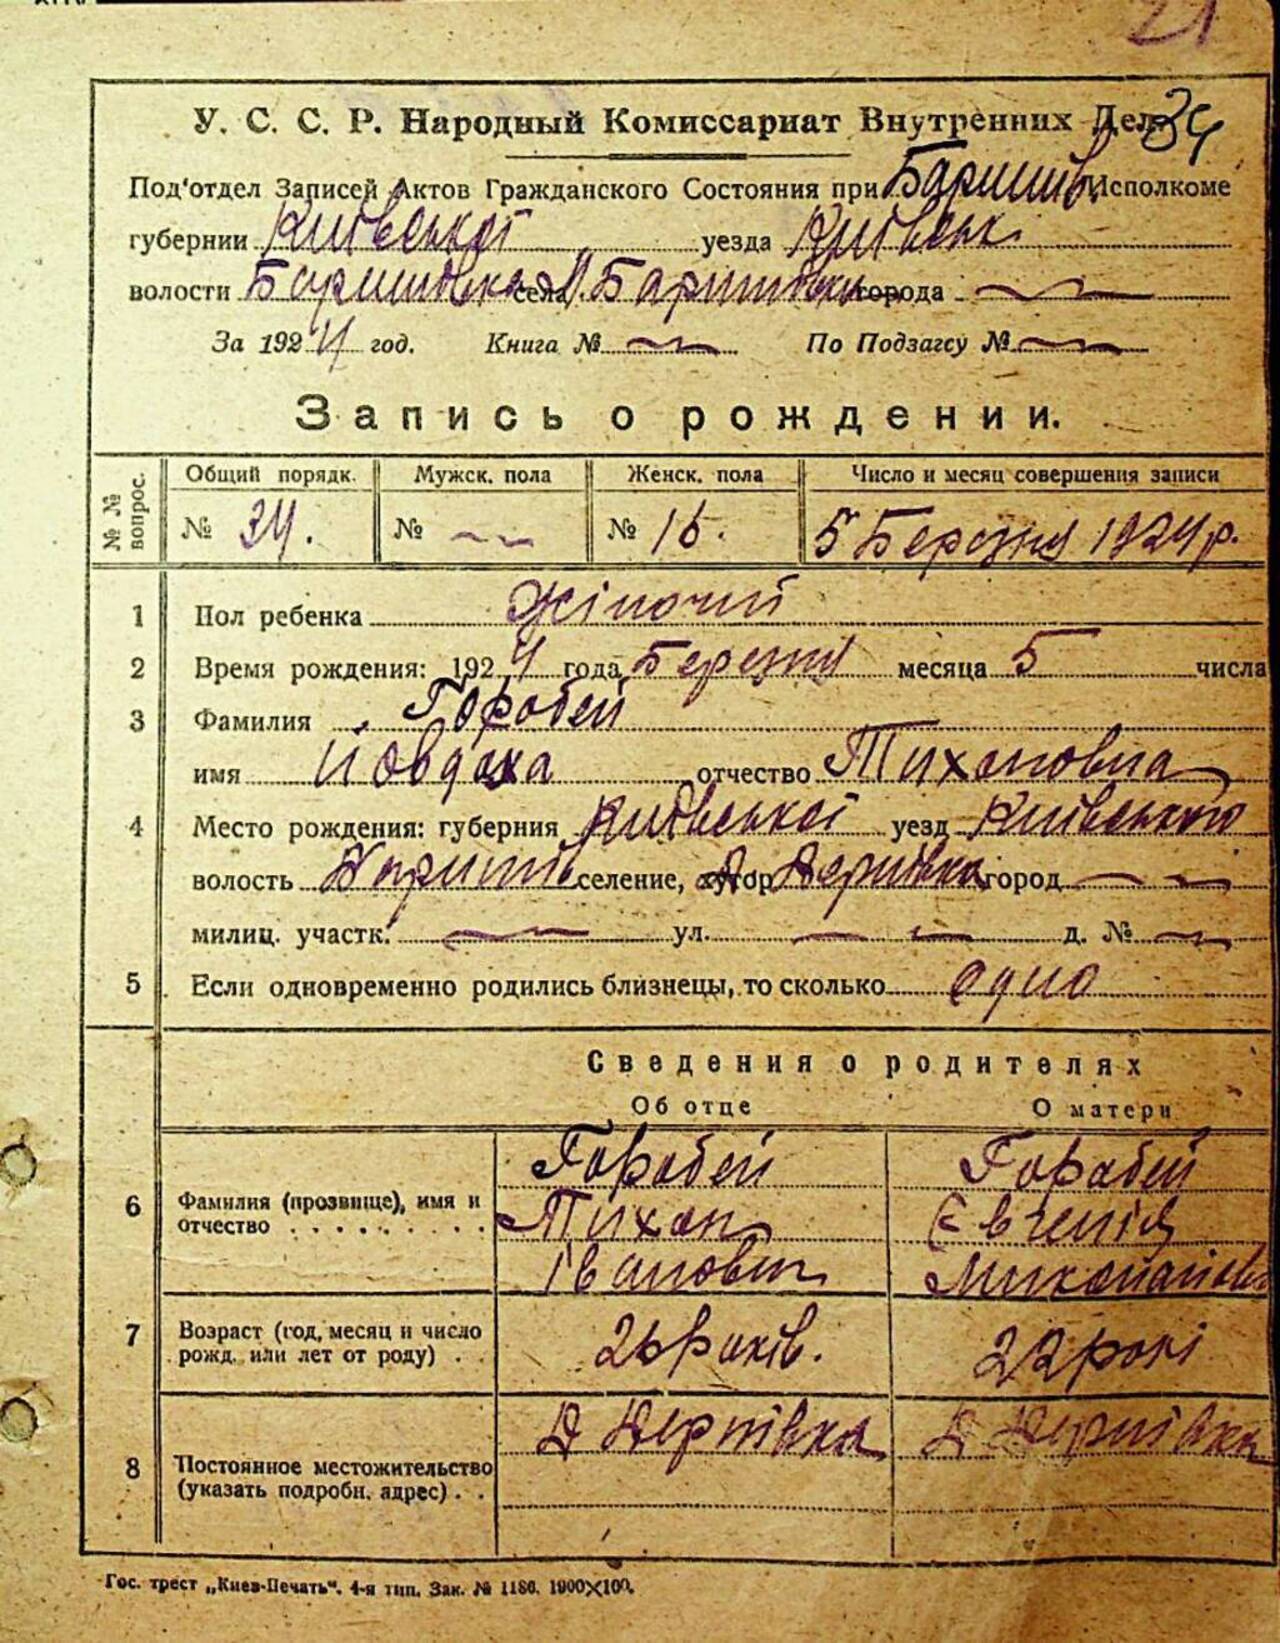 21
У. С. С. Р. Народный Комиссариат Внутренних Дел 34
Под'отдел Записей Актов Гражданского Состояния при Баришів. Исполкоме
губернии Київської уезда Київськ
волости Баришівка села Баришівки города
За 1924 год. Книга № По Подзагсу №
Запись о рождении.
№ № вопрос. Общий порядк. Мужск. пола Женск. пола Число и месяц совершения записи
№ 34. № № 15. 5 Березня 1924 р.
1 Пол ребенка Жіночий
2 Время рождения: 1924 года Березня месяца 5 числа
3 Фамилия Горобей
имя Йовдоха отчество Тихоновна
4 Место рождения: губерния Київської уезд Київського
волость Баришів селение, хутор город
милиц. участк. ул. д. №
5 Если одновременно родились близнецы, то сколько одно
Сведения о родителях
Об отце О матери
Горобей Горобей
6 Фамилия (прозвище), имя и отчество Тихон Євгенія
Іванович Миколаївна
7 Возраст (год, месяц и число рожд. или лет от роду) 26 років. 22 рокі
8 Постоянное местожительство (указать подробн. адрес)
Гос. трест „Киев-Печать“. 4-я тип. Зак. № 1186. 1900×100.